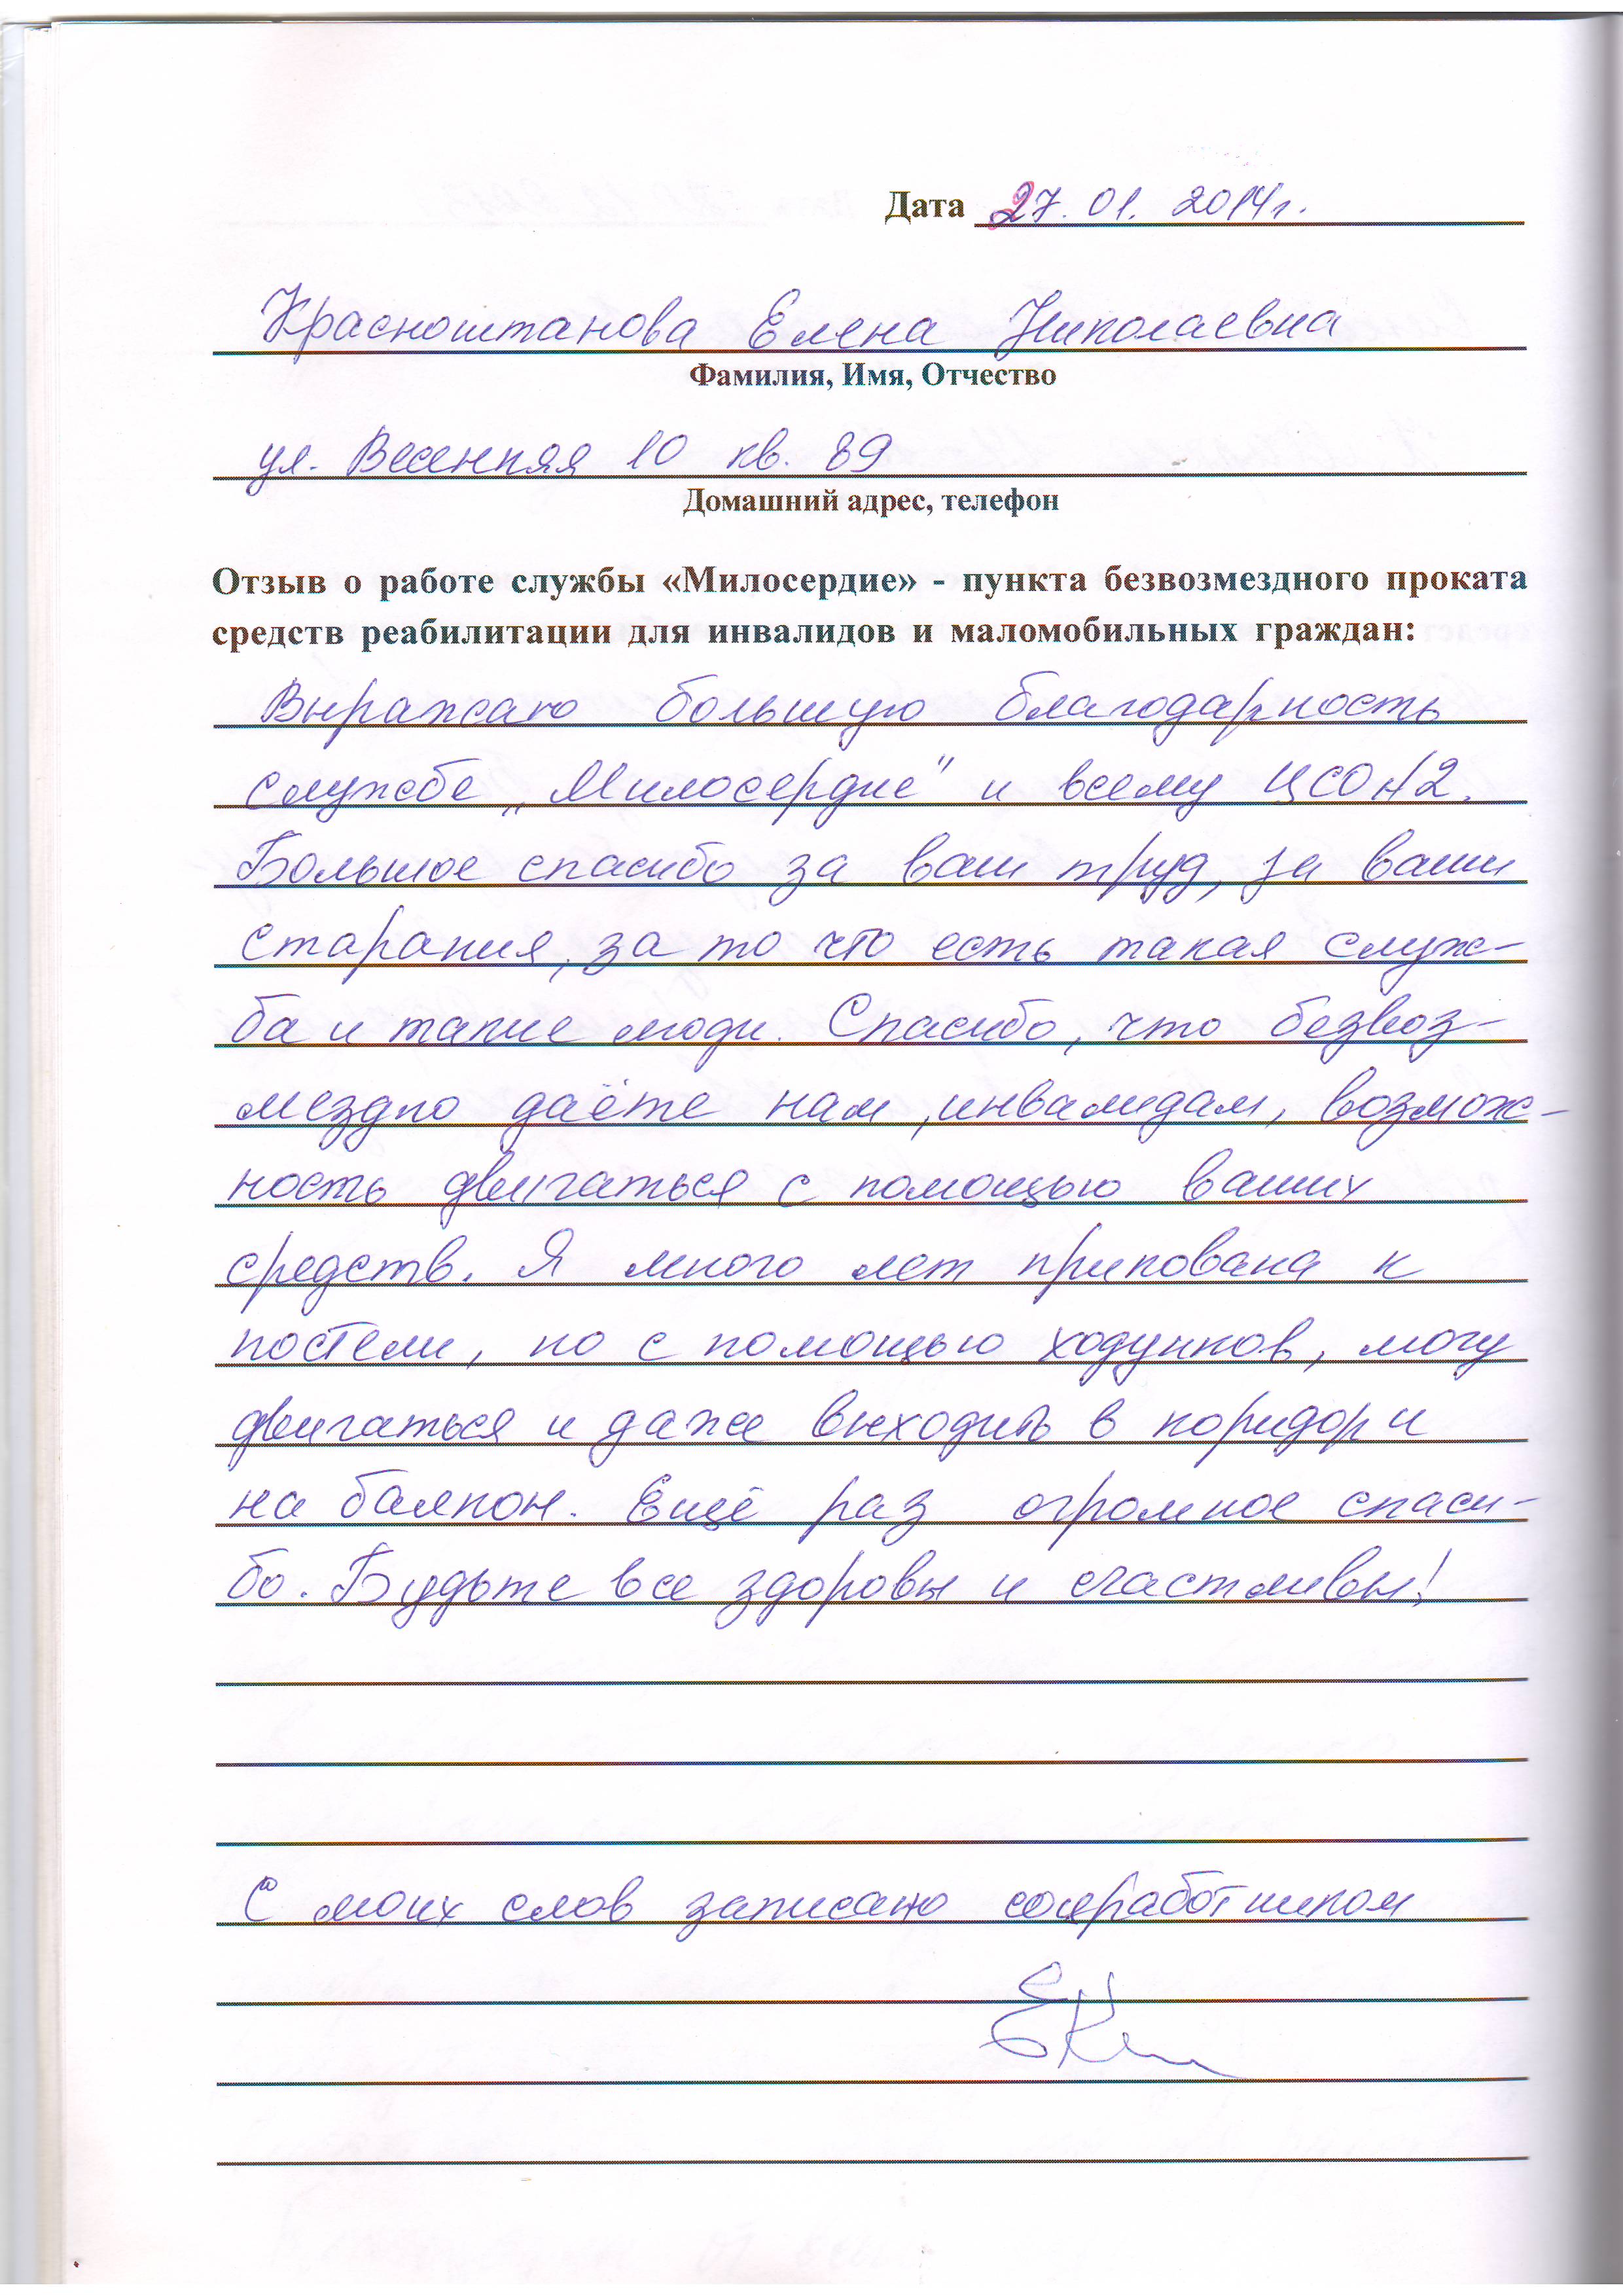 Дата 27.01.2014г.
Красноштанова Елена Николаевна
Фамилия, Имя, Отчество
ул. Весенняя 10 кв. 89
Домашний адрес, телефон
Отзыв о работе службы «Милосердие» - пункта безвозмездного проката
средств реабилитации для инвалидов и маломобильных граждан:
Выражаю большую благодарность
службе „Милосердие" и всему ЦСОН2.
Большое спасибо за ваш труд, за ваши
старания, за то что есть такая служ-
ба и такие люди. Спасибо, что безвоз-
мездно даёте нам, инвалидам, возмож-
ность двигаться с помощью ваших
средств. Я много лет прикована к
постели, но с помощью ходунков, могу
двигаться и даже выходить в коридор и
на балкон. Ещё раз огромное спаси-
бо. Будьте все здоровы и счастливы!
С моих слов записано соцработником